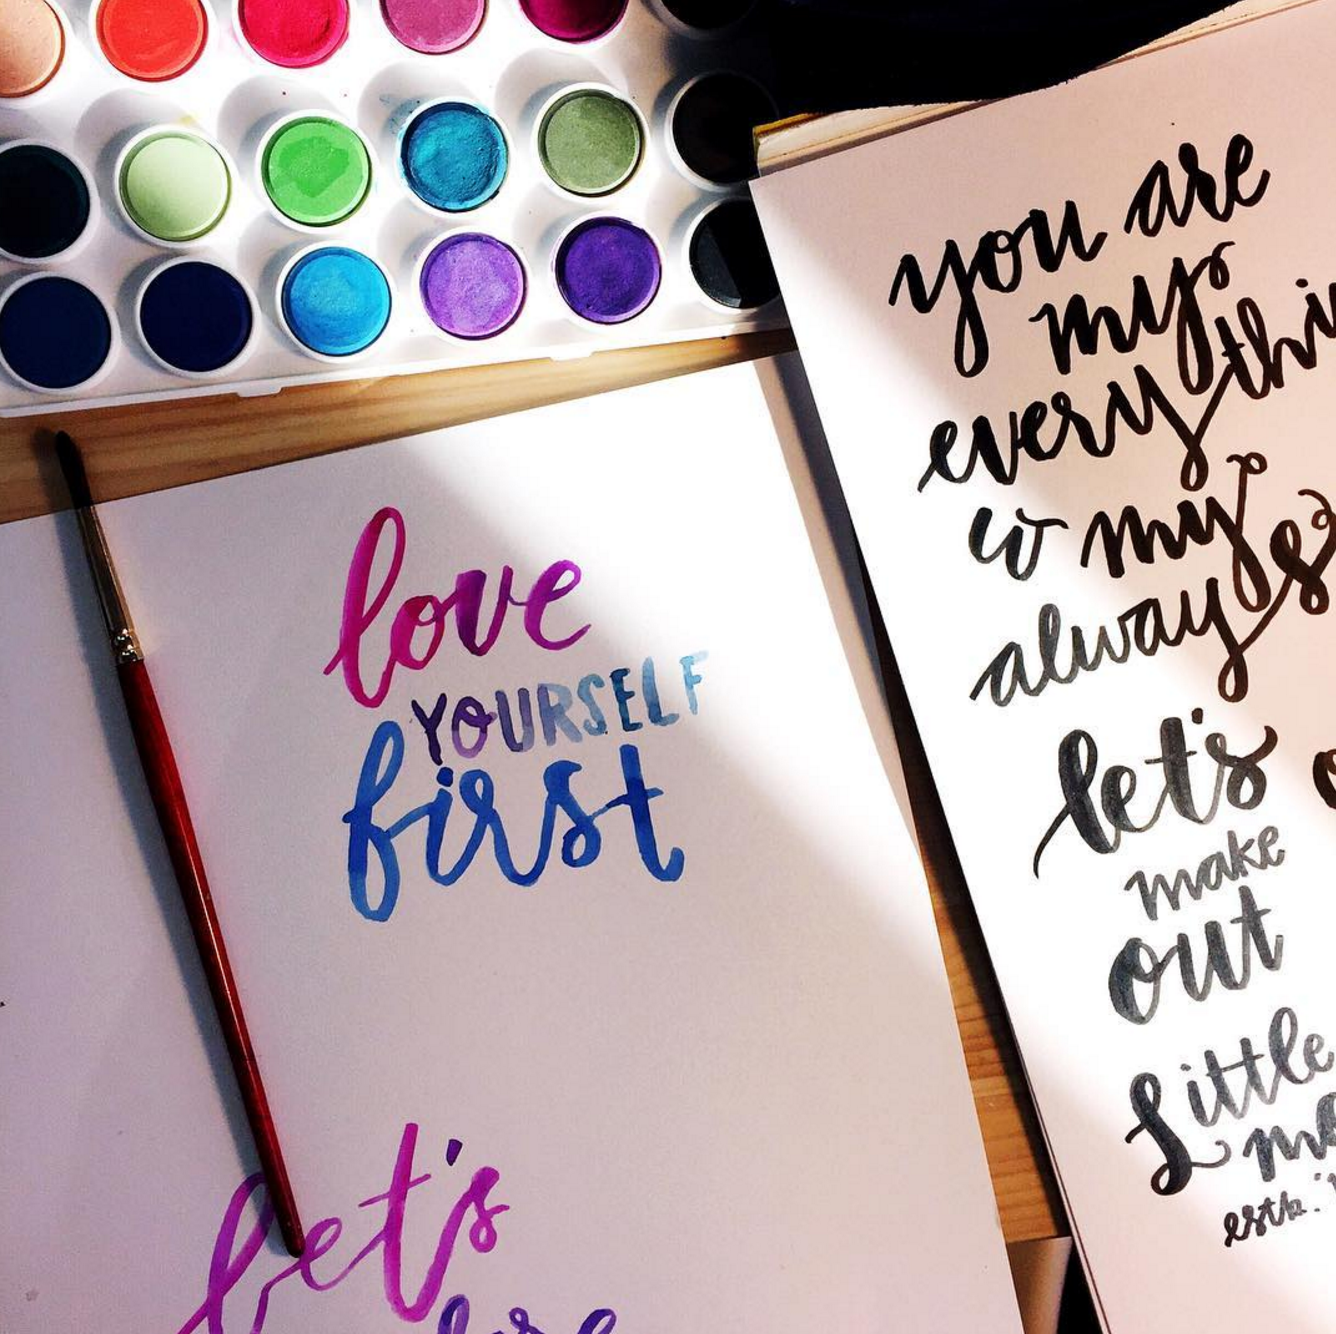 love
YOURSELF
first
let's
you are
my
every
my
always
let's
make
out
Little
estb.